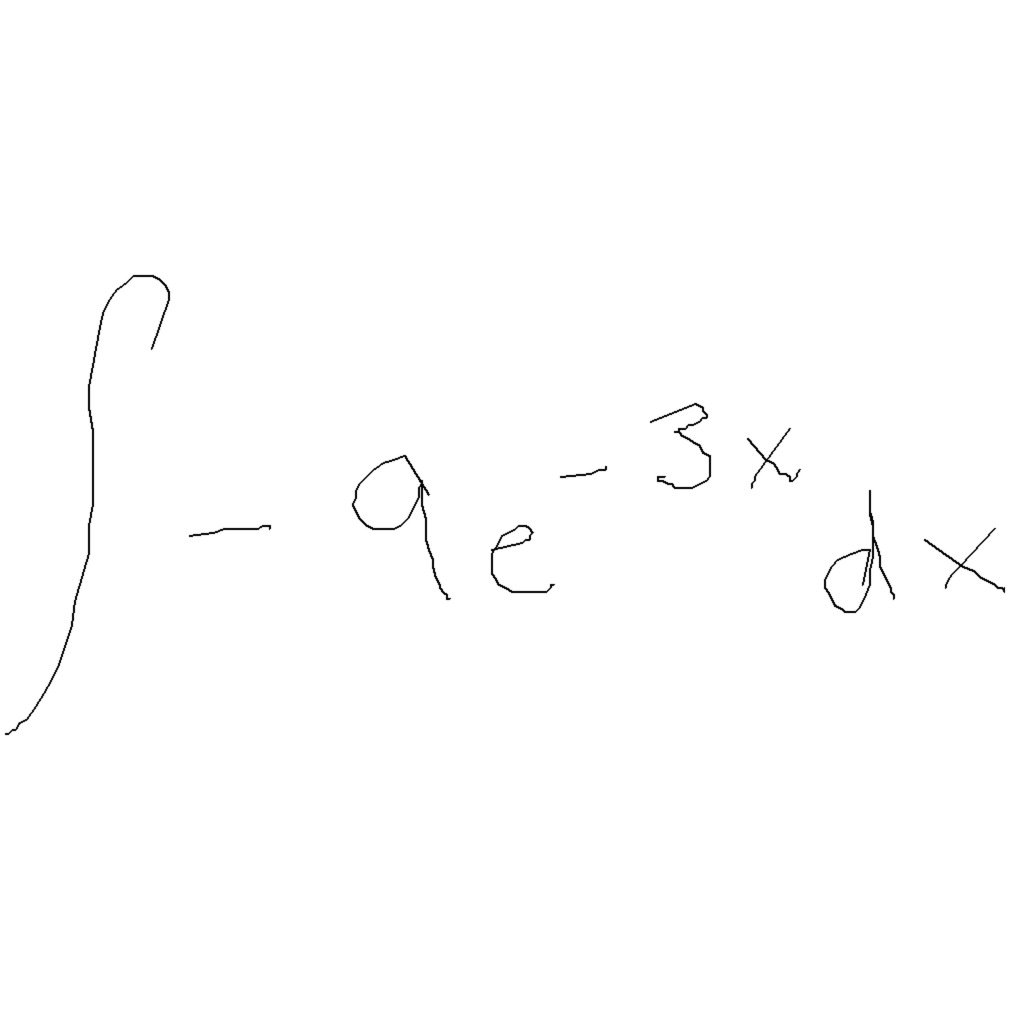 ∫ -9e^{-3x} dx